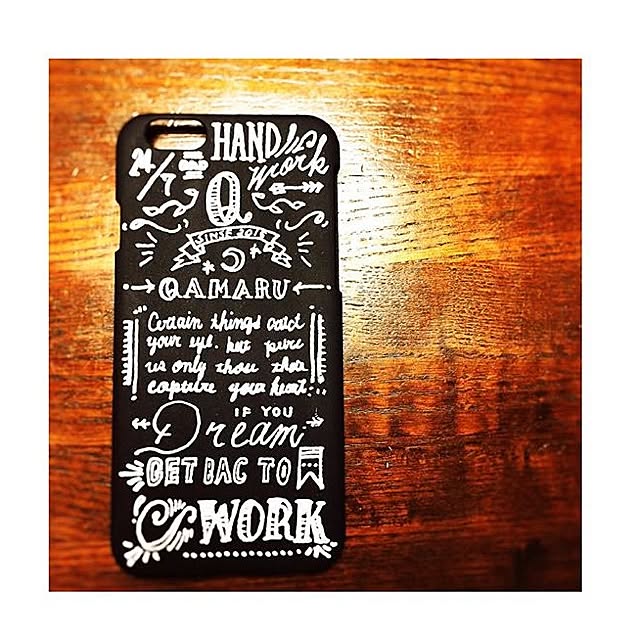 HAND
24/7
Work
Q
SINSE 2015
QAMARU
"Certain things catch
your eye. but pure
us only thou that
capture your heart."
IF YOU
Dream
GET BAC TO
WORK